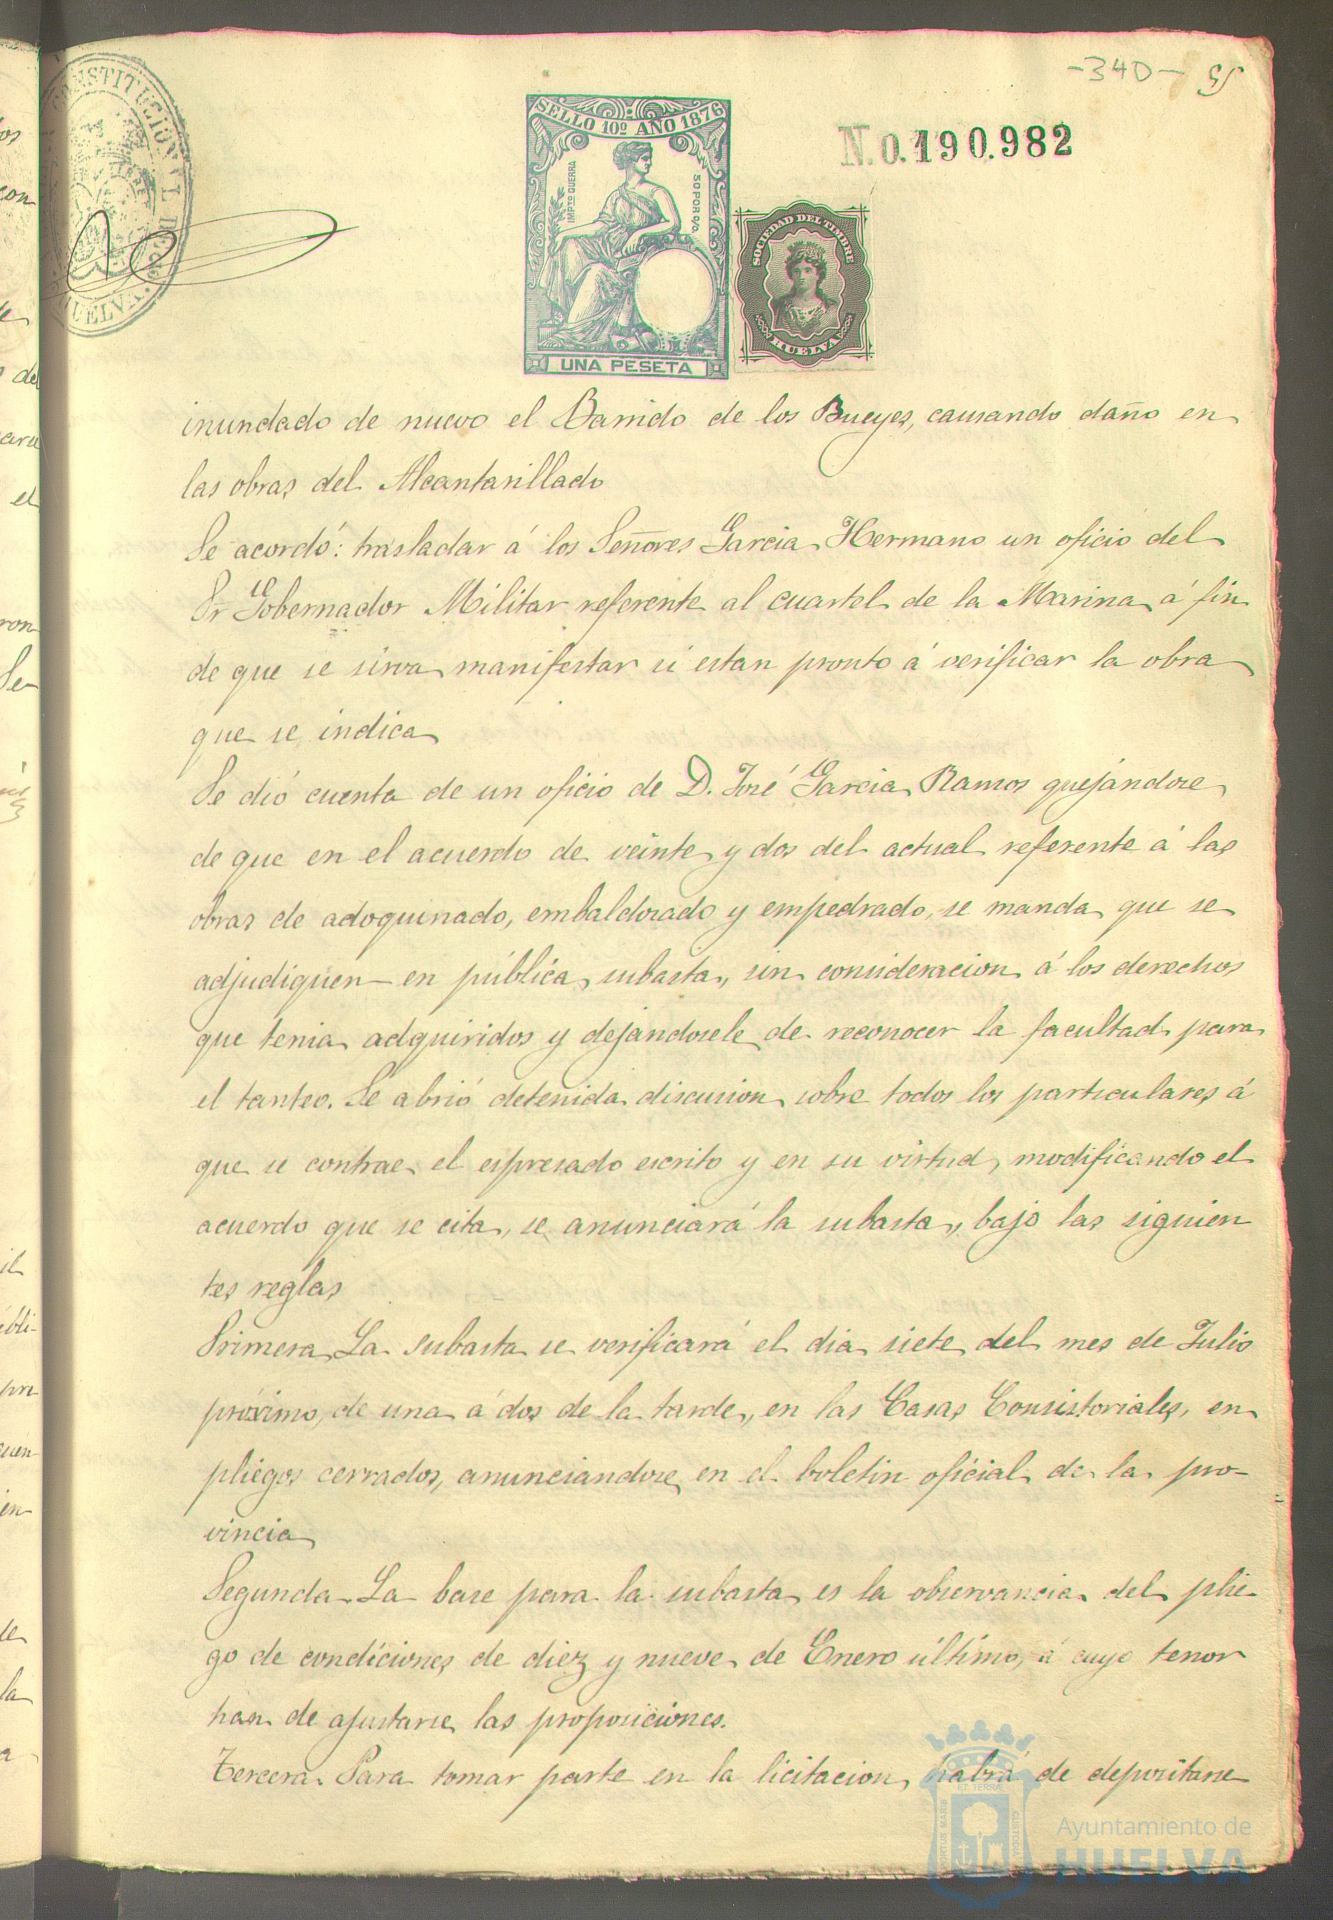 -340- 55
CONSTITUCIONAL DE HUELVA
SELLO 10º AÑO 1876
IMPTO GUERRA
50 POR 0/0
UNA PESETA
N. 0.190.982
SOCIEDAD DEL TIMBRE
HUELVA
inundado de nuevo el Barrido de los Bueyes, causando daño en
las obras del Alcantarillado
Se acordó: trasladar á los Señores Garcia Hermano un oficio del
Sr Gobernador Militar referente al cuartel de la Marina á fin
de que se sirva manifestar si estan pronto á verificar la obra
que se indica
Se dió cuenta de un oficio de D. José Garcia Ramos quejándose
de que en el acuerdo de veinte y dos del actual referente á las
obras de adoquinado, embaldosado y empedrado, se manda que se
adjudiquen en pública subasta, sin consideracion á los derechos
que tenia adquiridos y dejándosele de reconocer la facultad para
el tanteo. Se abrió detenida discusion sobre todos los particulares á
que se contrae el espresado escrito y en su virtud, modificando el
acuerdo que se cita, se anunciará la subasta, bajo las siguien
tes reglas
Primera La subasta se verificará el dia siete del mes de Julio
próximo, de una á dos de la tarde, en las Casas Consistoriales, en
pliegos cerrados, anunciandose en el boletin oficial de la pro-
vincia
Segunda La base para la subasta es la observancia del plie-
go de condiciones de diez y nueve de Enero último, á cuyo tenor
han de ajustarse las proposiciones.
Tercera. Para tomar parte en la licitacion habrá de depositarse
PORTUS MARIS ET TERRÆ CUSTODIA
Ayuntamiento de
HUELVA